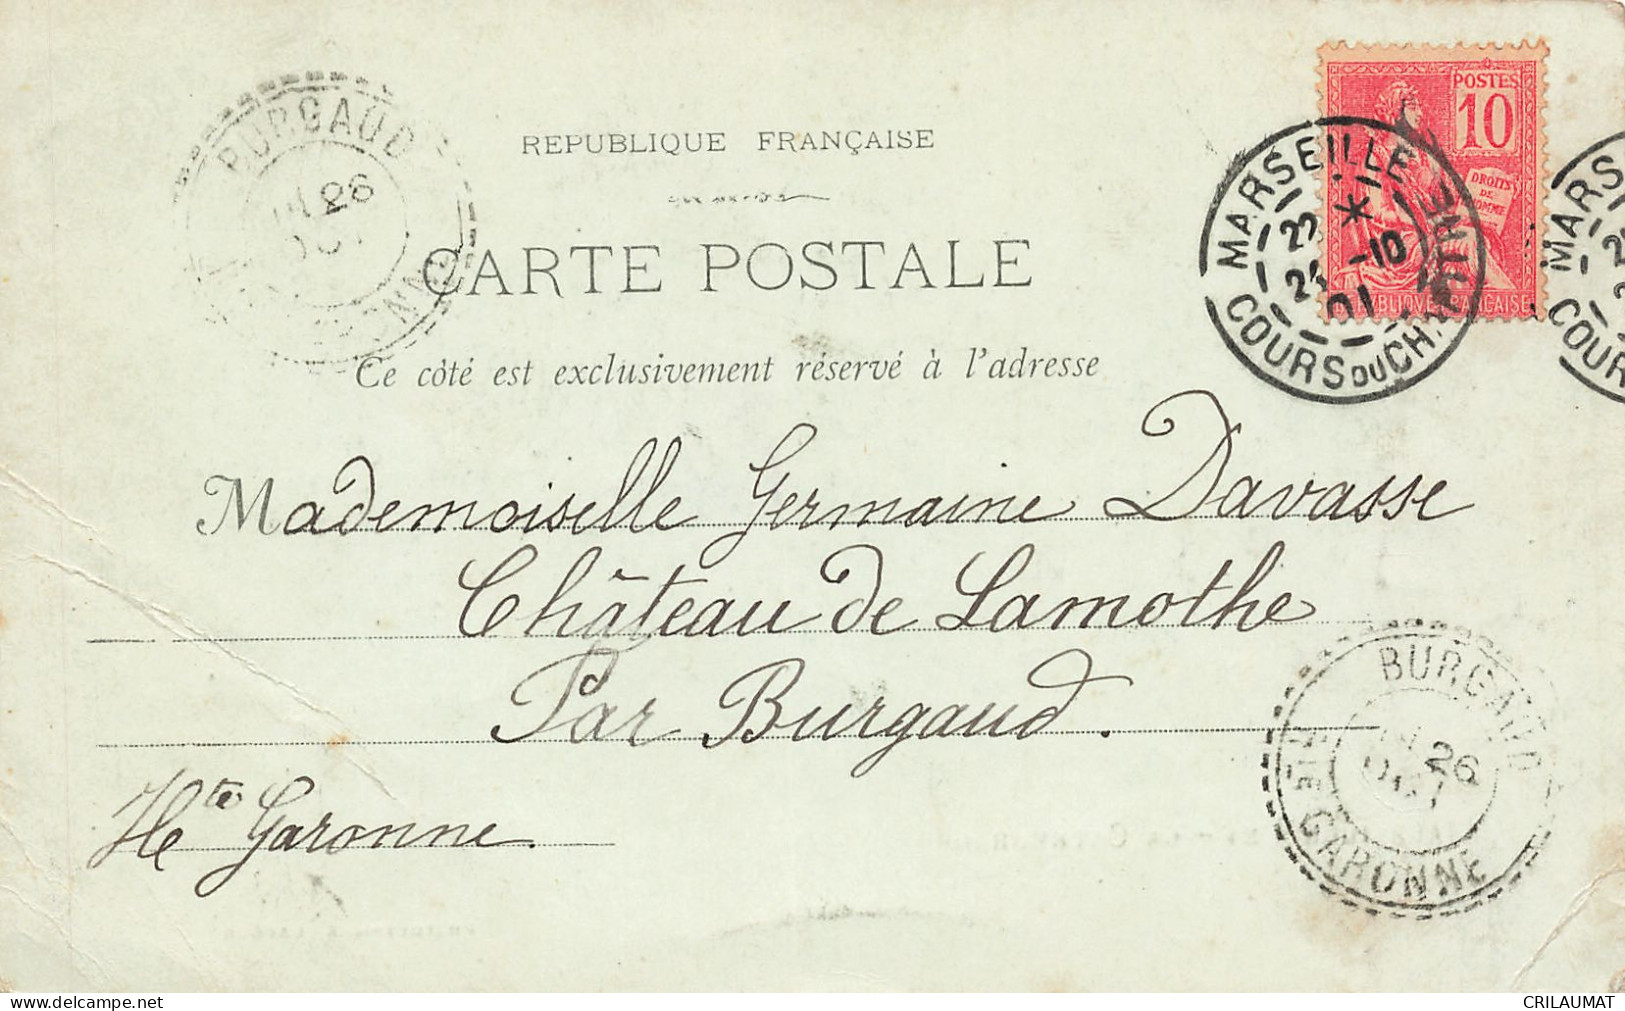 REPUBLIQUE FRANÇAISE
CARTE POSTALE
Ce côté est exclusivement réservé à l'adresse
Mademoiselle Germaine Davasse
Château de Lamothe
Par Burgaud.
Hte Garonne.
POSTES
10
DROITS
DE
HOMME
REPUBLIQUE FRANÇAISE
MARSEILLE
COURS DU CH
-10
01
BURGAUD
26
BURGAUD
26
HTE GARONNE
delcampe.net
CRILAUMAT